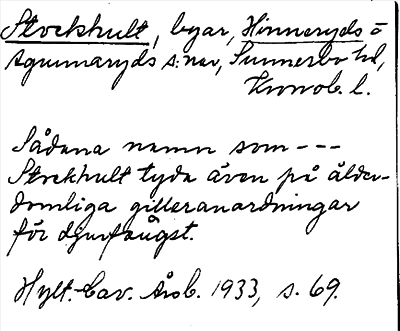 Stockhult, byar, Hinneryds o
Agunnaryds s:nar, Sunnerbo hd,
Kronob. l.
Sådana namn som ---
Stockhult tyda även på ålder-
domliga gilleranordningar
för djurfångst.
Hylt.-Cav. Årsb. 1933, s. 69.